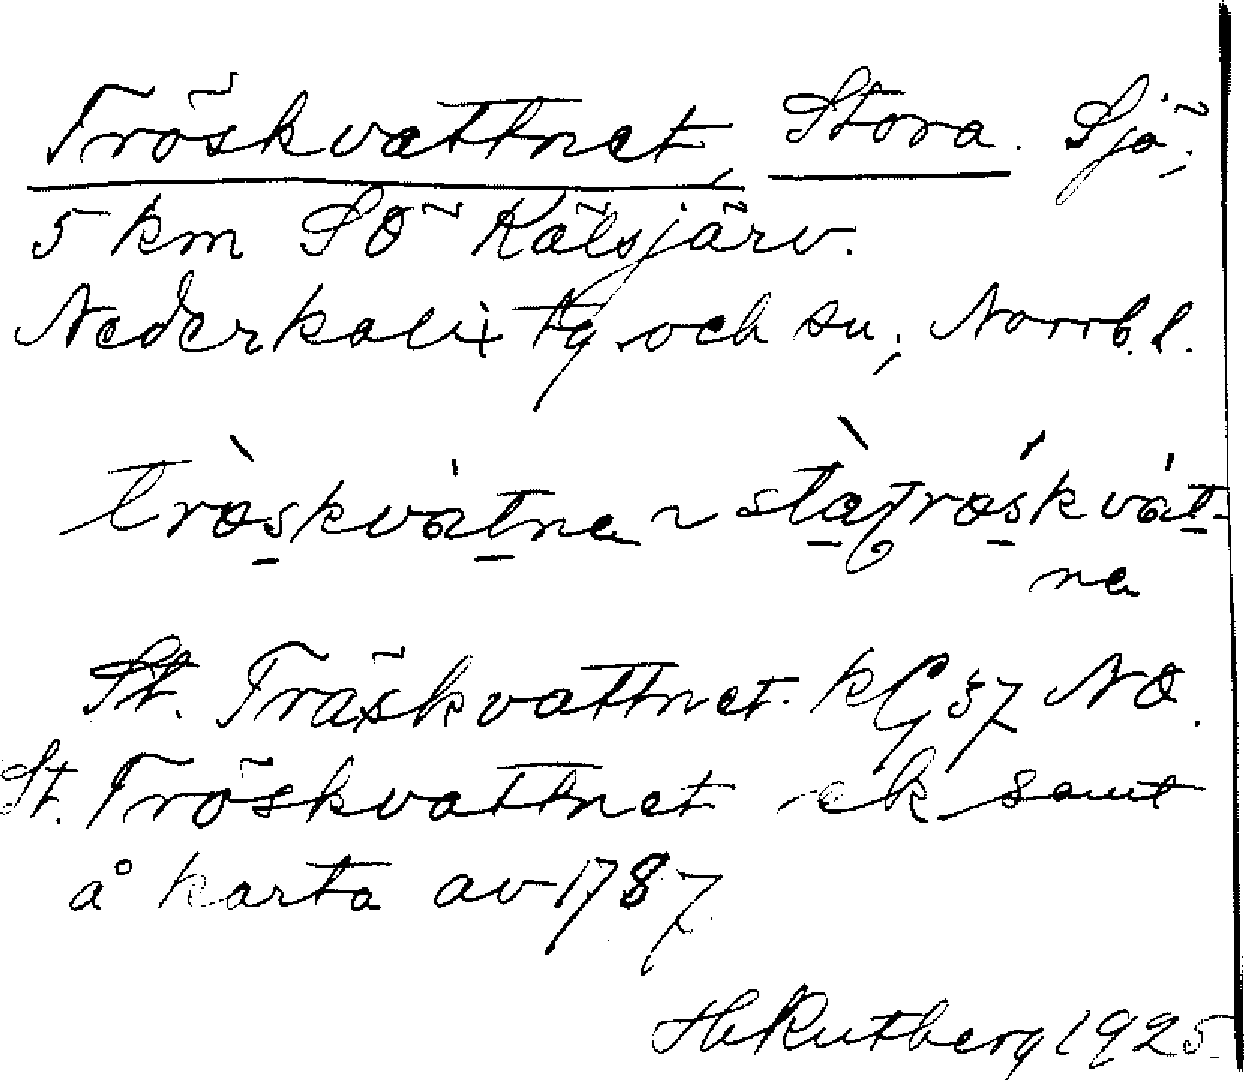 Tröskvattnet, Stora. Sjö;
5 km SÖ Kälsjärv.
Nederkalix tg och sn; Norrb. l.
tròskvátna ~ stàtròskvát-
na
St. Träskvattnet. kG 37 NO.
St. Tröskvattnet ek samt
å karta av 1787
Hb Rutberg 1925